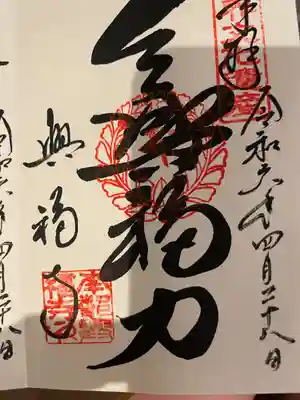 奉拝
令和六年四月二十八日
令興福力
興福寺
令和六年四月二十八日